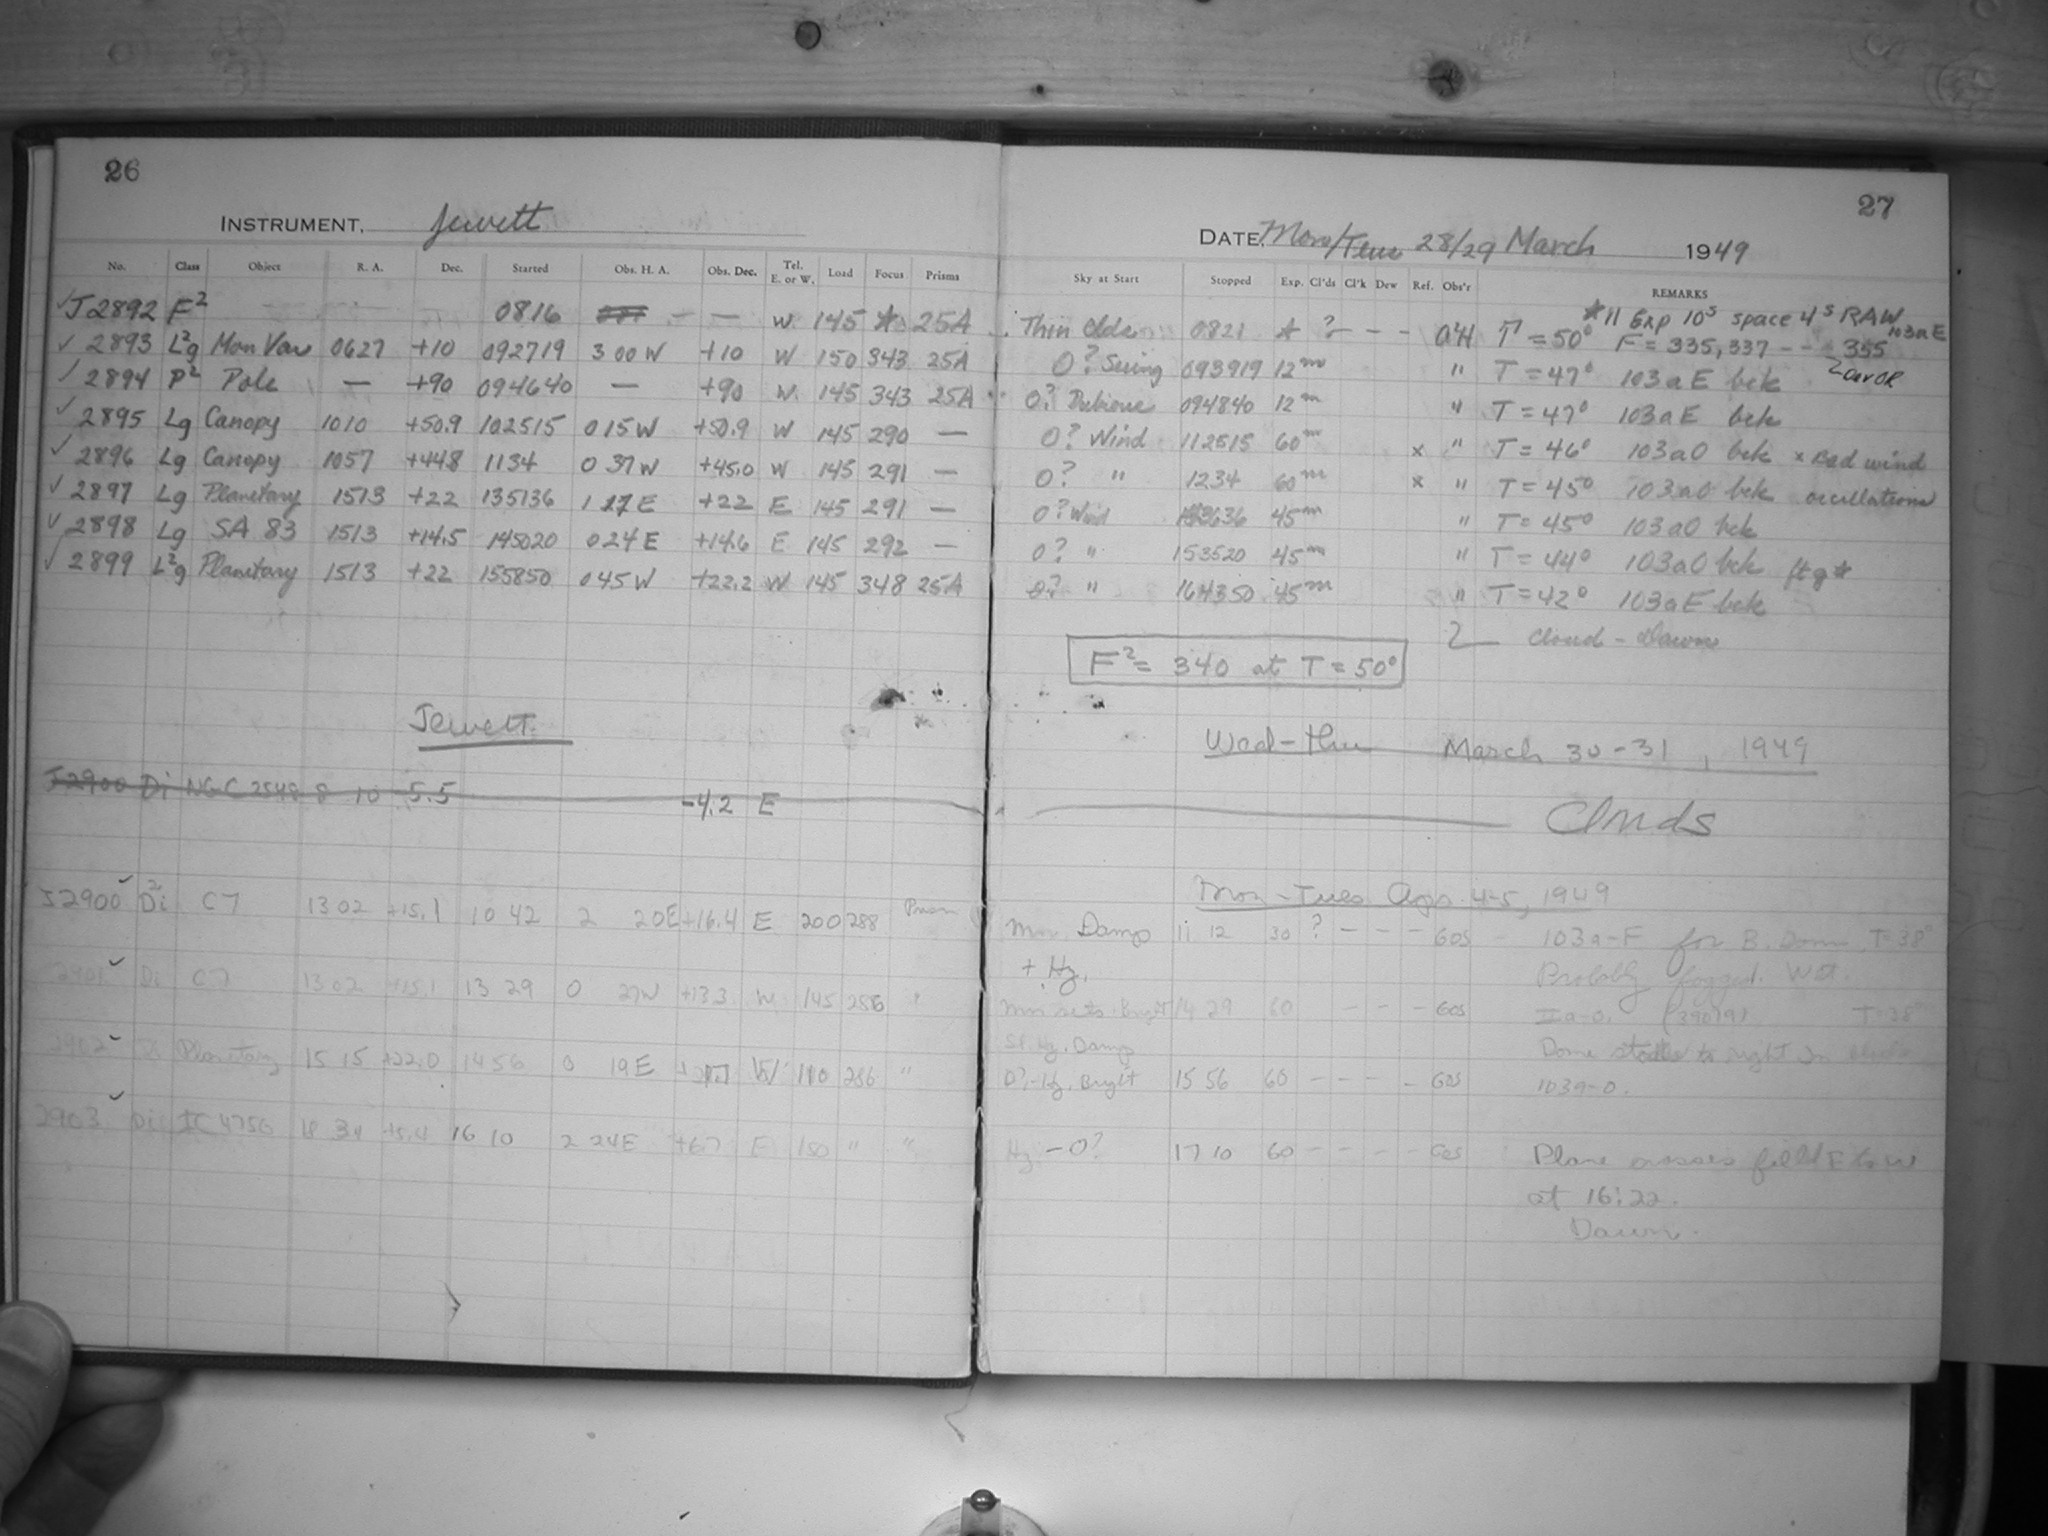 26
INSTRUMENT, Jewett
No. Class Object R. A. Dec. Started Obs. H. A. Obs. Dec. Tel. E. or W. Load Focus Prisms
✓ J2892 F² — — — 0816 — — W 145 * 25A
✓ 2893 L²g Mon Var 0627 +10 092719 3 00 W +10 W 150 343 25A
✓ 2894 P² Pole — +90 094640 — +90 W 145 343 25A
✓ 2895 Lg Canopy 1010 +50.9 102515 0 15 W +50.9 W 145 290 —
✓ 2896 Lg Canopy 1057 +44.8 1134 0 37 W +45.0 W 145 291 —
✓ 2897 Lg Planetary 1513 +22 135136 1 27 E +22 E 145 291 —
✓ 2898 Lg SA 83 1513 +14.5 145020 0 24 E +14.6 E 145 292 —
✓ 2899 L²g Planetary 1513 +22 155850 0 45 W +22.2 W 145 348 25A
Jewett
J2900 Di NGC 2548 8 10 -5.5 -4.2 E
J2900 ✓ Di² C7 13 02 +15.1 10 42 2 20E +16.4 E 200 288 Prism
2901 ✓ Di C7 13 02 +15.1 13 29 0 27W +13.3 W 145 286 "
2902 ✓ Di Planetary 15 15 +22.0 14 56 0 19E W 110 286 "
2903 ✓ Di IC 4756 18 34 +5.4 16 10 2 24E +6.7 E 150 " "
27
DATE, Mon/Tues 28/29 March 1949
Sky at Start Stopped Exp. Cl'ds Cl'k Dew Ref. Obs'r REMARKS
*11 Exp 10ˢ space 4ˢ RAW
Thin clds 0821 * ? — — — O'H T = 50° F = 335, 337 - - 355 103aE
0? Seeing 093919 12ᵐ " T = 47° 103aE bck
0? Dubious 094840 12ᵐ " T = 47° 103aE bck
0? Wind 112515 60ᵐ x " T = 46° 103aO bck x Bad wind
0? " 1234 60ᵐ x " T = 45° 103aO bck oscillations
0? Wind 45ᵐ " T = 45° 103aO bck
0? " 153520 45ᵐ " T = 44° 103aO bck ftg*
0? " 164350 45ᵐ " T = 42° 103aE bck
Cloud - Dawn
F² = 340 at T = 50°
Wed-thu March 30-31, 1949
Clouds
Mon-Tues Apr 4-5, 1949
Mon Damp 11 12 30 ? — — — GOS 103a-F for B. Donn T=38°
+ Hz. Probably fogged. Wet.
Mn sets. Bright 14 29 60 — — — GOS IIa-O. (39079) T=38°
Sl. Hz. Damp Dome to right in
0?-Hz. Bright 15 56 60 — — — GOS 103a-O.
Hz - 0? 17 10 60 — — — — GOS Plane crosses field E to W
at 16:22.
Dawn.